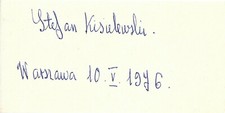 Stefan Kisielewski.
Warszawa 10. V. 1976.